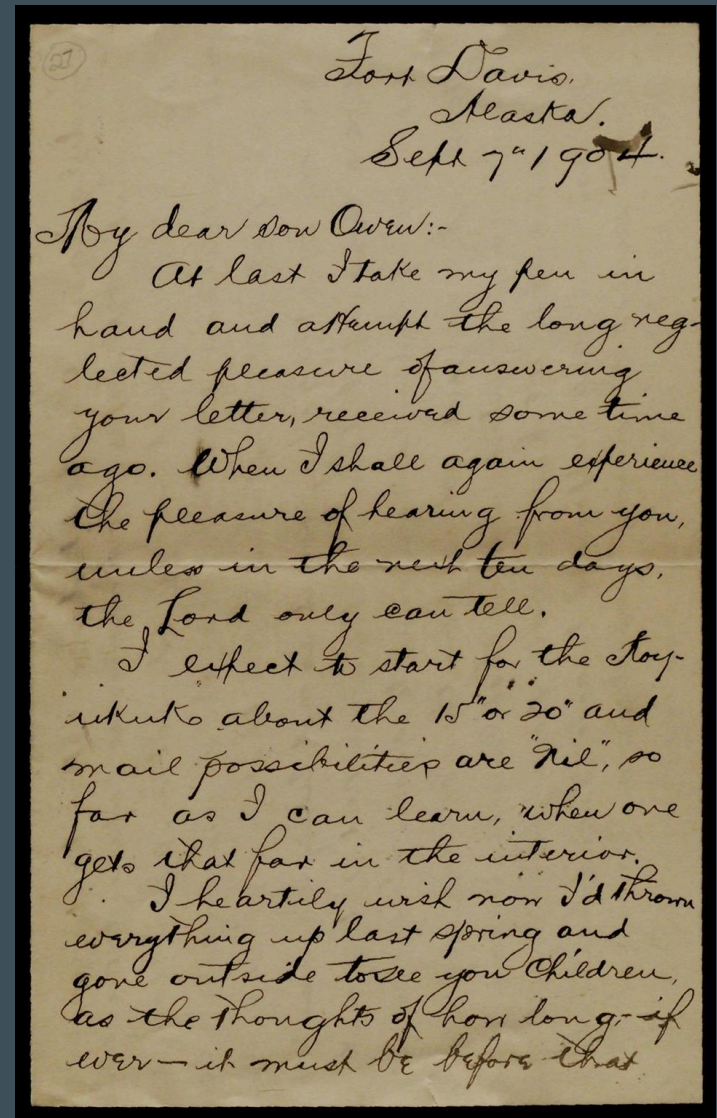 27
Fort Davis.
Alaska.
Sept 7" 1904.
My dear son Owen:-
At last I take my pen in
hand and attempt the long neg-
lected pleasure of answering
your letter, received some time
ago. When I shall again experience
the pleasure of hearing from you,
unless in the next ten days,
the Lord only can tell.
I expect to start for the Koy-
ukuk about the 15" or 20" and
mail possibilities are "Nil", so
far as I can learn, when one
gets that far in the interior.
I heartily wish now I'd thrown
everything up last spring and
gone outside to see you children,
as the thoughts of how long,- if
ever - it must be before that